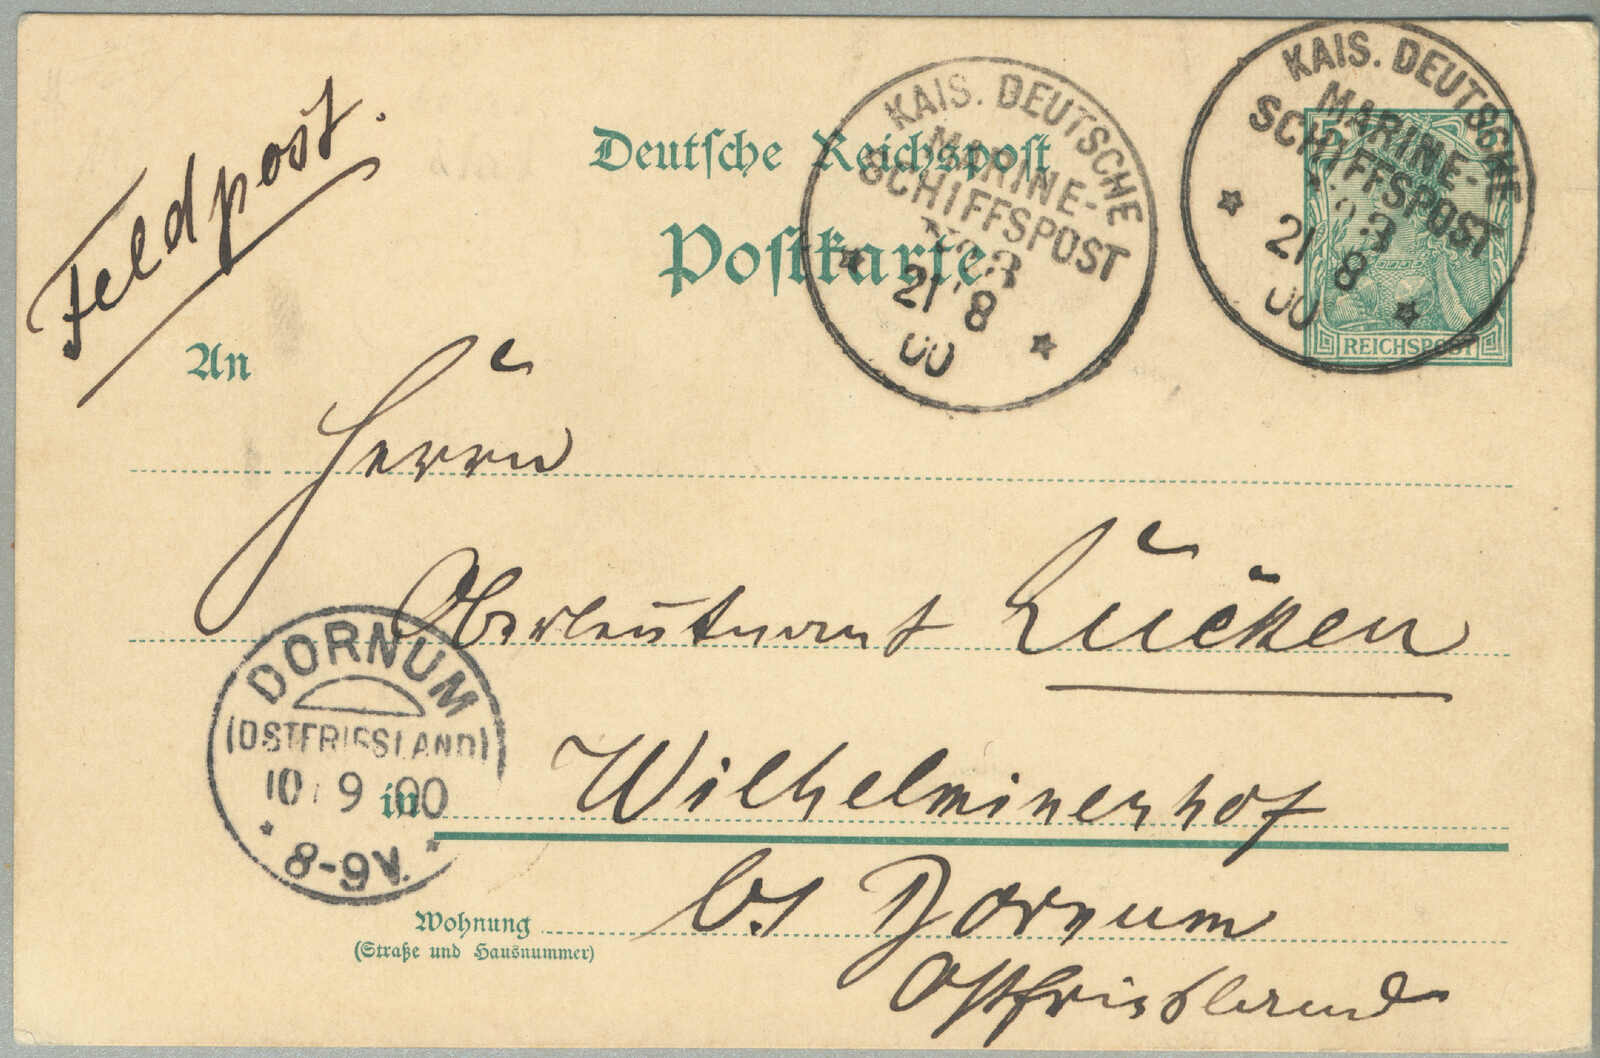 Feldpost.
Deutsche Reichspost
Postkarte
KAIS. DEUTSCHE
MARINE-
SCHIFFSPOST
No 3
21 8
00
KAIS. DEUTSCHE
MARINE-
SCHIFFSPOST
No 3
21 8
00
REICHSPOST
An
Herrn
Oberleutnant Lücken
DORNUM
(OSTFRIESLAND)
10 9 00
8-9V.
in Wilhelminenhof
Wohnung
(Straße und Hausnummer)
b/ Dornum
Ostfriesland